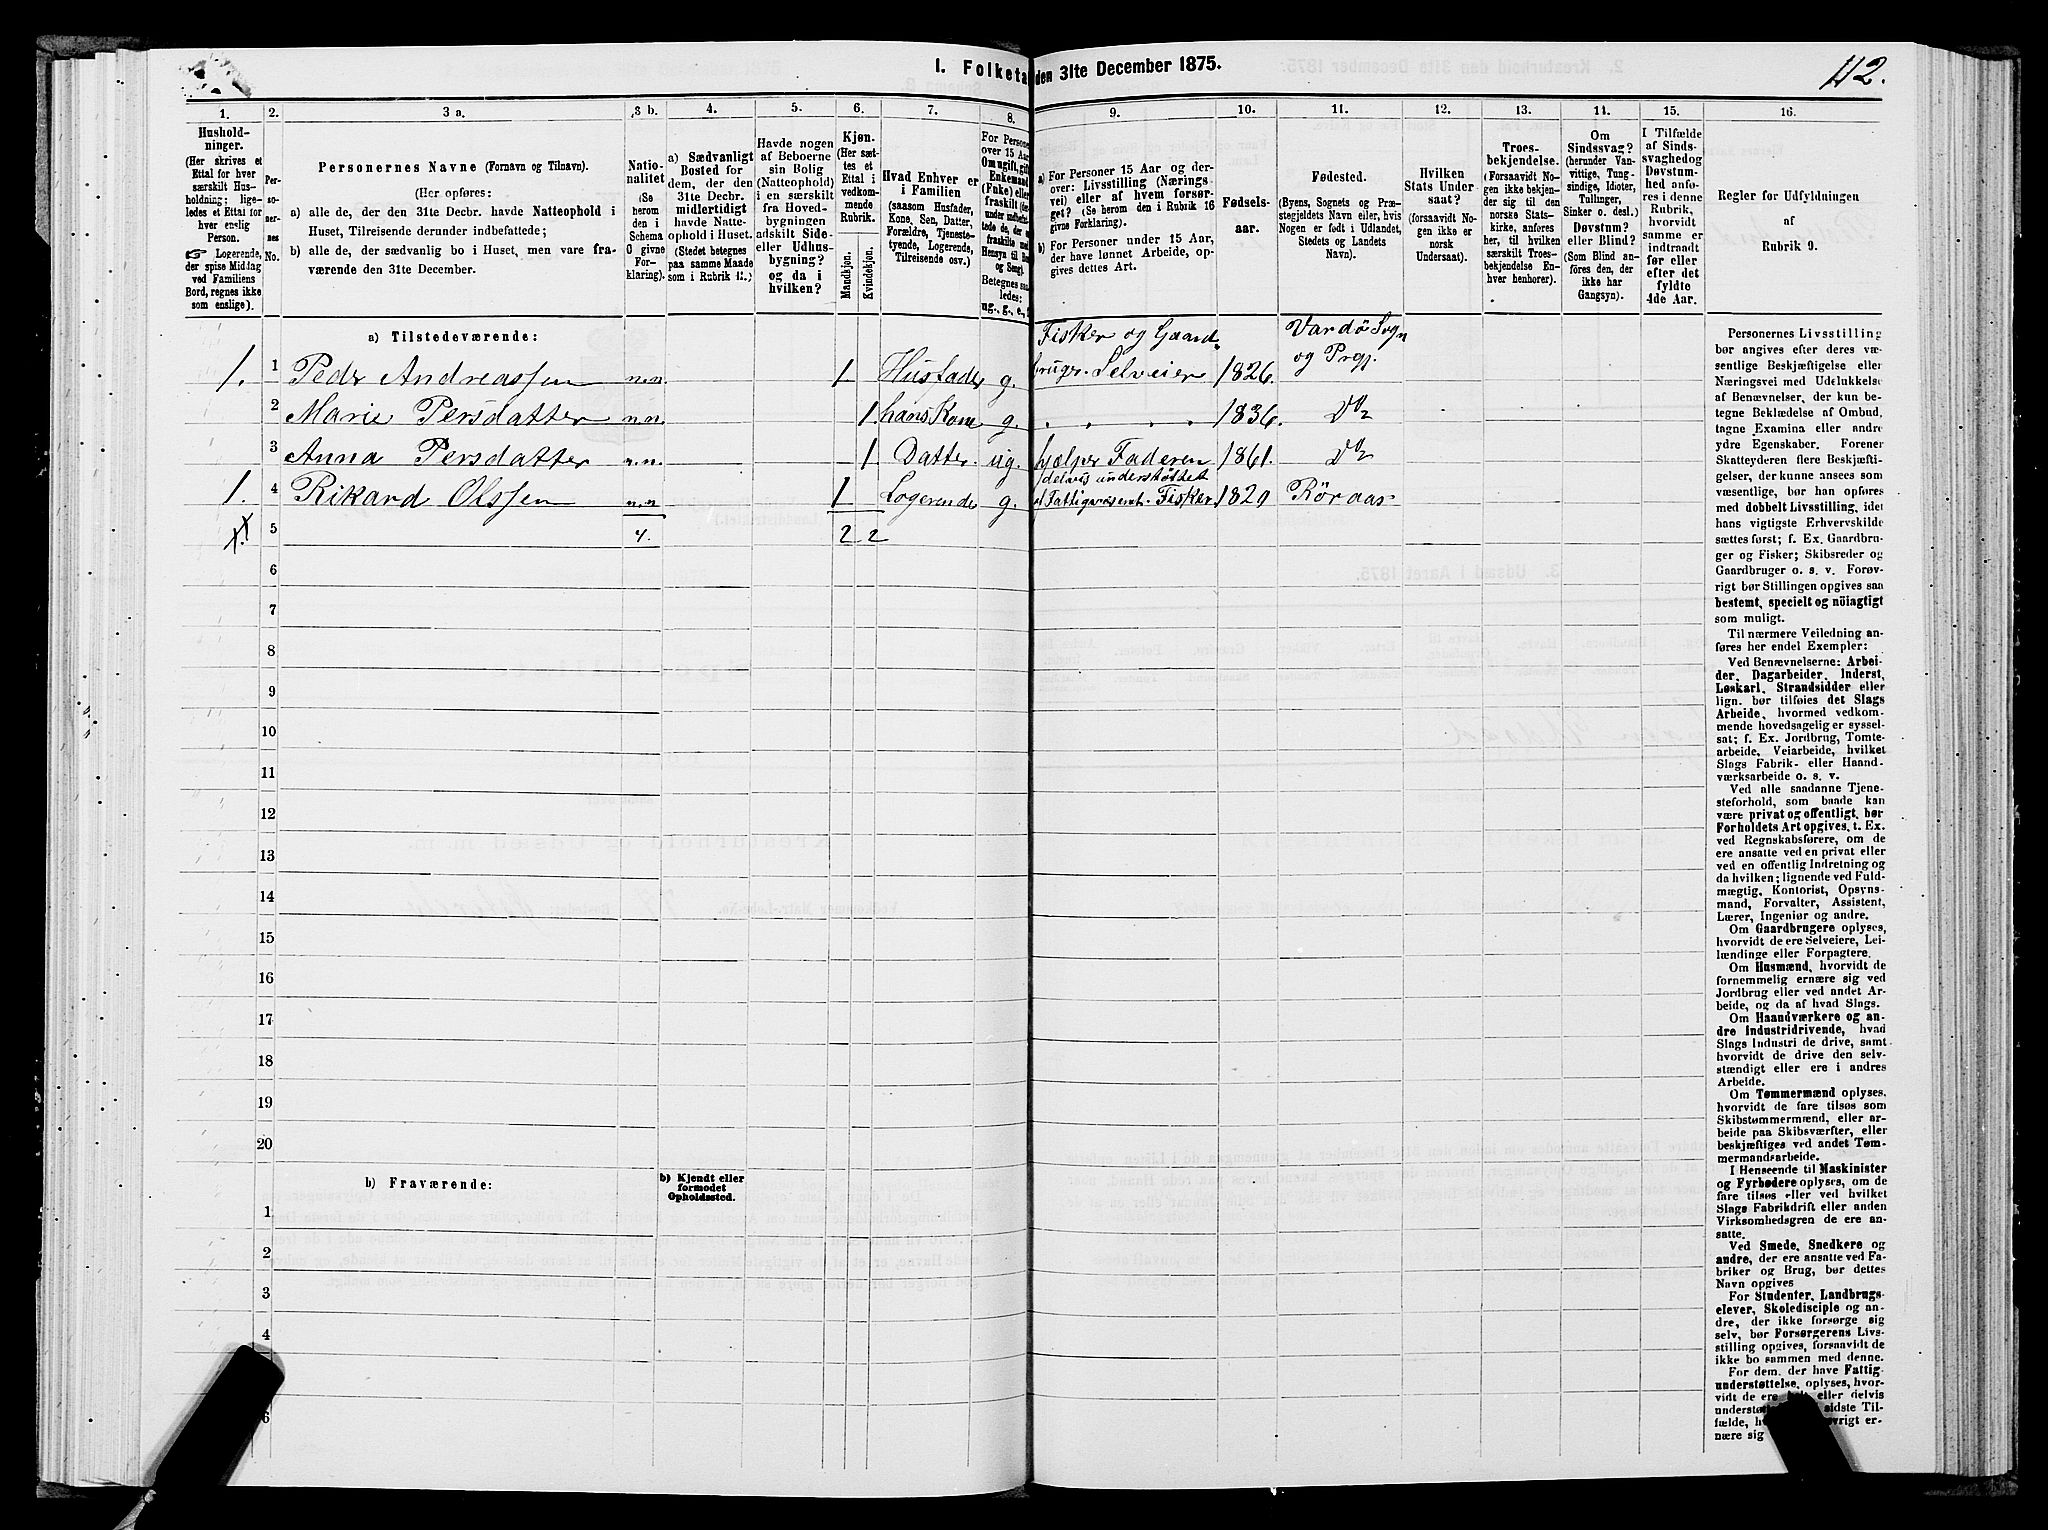 I. Folketa den 31te December 1875.
42.
1.
2.
3 a.
3 b.
4.
5.
6.
7.
8.
9.
10.
11.
12.
13.
14.
15.
16.
Hushold-
ninger.
(Her skrives et
Ettal for hver
særskilt Hus-
holdning; lige-
ledes et Ettal for
hver enslig
Person.
☞ Logerende,
der spise Middag
ved Familiens
Bord, regnes ikke
som enslige).
Per-
so-
ner-
nes
No.
Personernes Navne (Fornavn og Tilnavn).
(Her opføres:
a) alle de, der den 31te Decbr. havde Natteophold i
Huset, Tilreisende derunder indbefattede;
b) alle de, der sædvanlig bo i Huset, men vare fra-
værende den 31te December.
Natio-
nalitet
(Se
herom
den i
Schema
O givne
For-
klaring).
a) Sædvanligt
Bosted for
dem, der den
31te Decbr.
midlertidigt
havde Natte-
ophold i Huset.
(Stedet betegnes
paa samme Maade
som i Rubrik 11.)
Havde nogen
af Beboerne
sin Bolig
(Natteophold)
i en særskilt
fra Hoved-
bygningen
adskilt Side-
eller Udhus-
bygning?
og da i
hvilken?
Kjøn.
(Her sæt-
tes et
Ettal i
vedkom-
mende
Rubrik.
Mandkjøn.
Kvindekjøn.
Hvad Enhver er
i Familien
(saasom Husfader,
Kone, Søn, Datter,
Forældre, Tjeneste-
tyende, Logerende,
Tilreisende osv.)
For Persone
over 15 Aar
Om ugift, gift
Enkemand
(Enke) eller
fraskilt
Betegnes saa
ledes:
ug., g., e., f
a) For Personer 15 Aar og der-
over: Livsstilling (Nærings-
vei) eller af hvem forsør-
get? (Se herom den i Rubrik 16
givne Forklaring).
b) For Personer under 15 Aar,
der have lønnet Arbeide, op-
gives dettes Art.
Fødsels-
aar.
Fødested.
(Byens, Sognets og Præ-
stegjeldets Navn eller, hvis
Nogen er født i Udlandet,
Stedets og Landets
Navn).
Hvilken
Stats Under
saat?
(forsaavidt No-
gen ikke er
norsk
Undersaat).
Troes-
bekjendelse.
(Forsaavidt No-
gen ikke bekjen-
der sig til den
norske Stats-
kirke, anføres
her, til hvilken
særskilt Troes-
bekjendelse En-
hver henhører).
Om
Sindssvag?
(herunder Van-
vittige, Tung-
sindige, Idioter,
Tullinger,
Sinker o. desl.)
Døvstum?
eller Blind?
(Som Blind an-
føres den, der
ikke har
Gangsyn).
I Tilfælde
af Sinds-
svaghed og
Døvstum-
hed anfø-
res i denne
Rubrik,
hvorvidt
samme er
indtraadt
før eller
efter det
fyldte
4de Aar.
Regler for Udfyldningen
af
Rubrik 9.
a) Tilstedeværende:
Fisker og Gaard-
Vardö Sogn
1. 1 Peder Andreassen n.n. 1 Husfader g. bruger. Selveier 1826. og Prgj.
2 Marie Persdatter n.n. 1. hans Kone g. 1836. Do
3 Anna Persdatter n.n. 1 Datter. ug. hjælper Faderen 1861. Do
delvis understöttet
1. 4 Rikard Olssen n.n 1 Logerende g. af Fattigvæsent. Fisker 1820 Röraas
5 4. 2 2
6
7
8
9
10
11
12
13
14
15
16
17
18
19
20
b) Fraværende:
b) Kjendt eller
formodet
Opholdssted.
1
2
3
4
6
Personernes Livsstilling
bør angives efter deres væ-
sentlige Beskjæftigelse eller
Næringsvei med Udelukkelse
af Benævnelser, der kun be-
tegne Beklædelse af Ombud,
tagne Examina eller andre
ydre Egenskaber. Forener
Skatteyderen flere Beskjæfti-
gelser, der kunne ansees som
væsentlige, bør han opføres
med dobbelt Livsstilling, idet
hans vigtigste Erhvervskilde
sættes først; f. Ex. Gaardbru-
ger og Fisker; Skibsreder og
Gaardbruger o. s. v. Forøv-
rigt bør Stillingen opgives saa
bestemt, specielt og nöiagtigt
som muligt.
Til nærmere Veiledning an-
føres her endel Exempler:
Ved Benævnelserne: Arbei-
der, Dagarbeider, Inderst,
Løskarl, Strandsidder eller
lign. bør tilføies det Slags
Arbeide, hvormed vedkom-
mende hovedsagelig er syssel-
sat; f. Ex. Jordbrug, Tomte-
arbeide, Veiarbeide, hvilket
Slags Fabrik- eller Haand-
værksarbeide o. s. v.
Ved alle saadanne Tjene-
steforhold, som baade kan
være privat og offentligt, bør
Forholdets Art opgives, t. Ex.
ved Regnskabsførere, om de
ere ansatte ved en privat eller
ved en offentlig Indretning og
da hvilken; lignende ved Fuld-
mægtig, Kontorist, Opsyns-
mand, Forvalter, Assistent,
Lærer, Ingeniør og andre.
Om Gaardbrugere oplyses,
hvorvidt de ere Selveiere, Lei-
lændinge eller Forpagtere.
Om Husmænd, hvorvidt de
fornemmelig ernære sig ved
Jordbrug eller ved andet Ar-
beide, og da af hvad Slags.
Om Haandværkere og an-
dre Industridrivende, hvad
Slags Industri de drive, samt
hvorvidt de drive den selv-
stændigt eller ere i andres
Arbeide.
Om Tømmermænd oplyses,
hvorvidt de fare tilsøs som
Skibstømmermænd, eller ar-
beide paa Skibsværfter, eller
beskjæftiges ved andet Tøm-
mermandsarbeide.
I Henseende til Maskinister
og Fyrbødere oplyses, om de
fare tilsøs eller ved hvilket
Slags Fabrikdrift eller anden
Virksomhedsgren de ere an-
satte.
Ved Smede, Snedkere og
andre, der ere ansatte ved Fa-
briker og Brug, bør dettes
Navn opgives
For Studenter, Landbrugs-
elever, Skoledisciple og an-
dre, der ikke forsørge sig
selv, bør Forsørgerens Livs-
stilling opgives, forsaavidt de
ikke bo sammen med denne.
For dem, der have Fattig-
understøttelse, oplyses, hvor-
vidt de ere eller delvis
understøt sidste Til-
fælde, h vrigt er-
nære sig